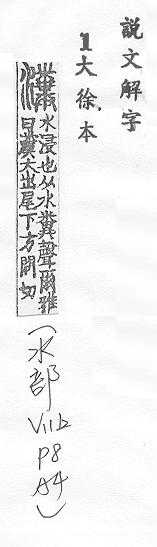 說文解字
1大徐本
瀵水浸也从水糞聲爾雅
曰瀵大出尾下方問切
(水部
VII12
P8
A4)